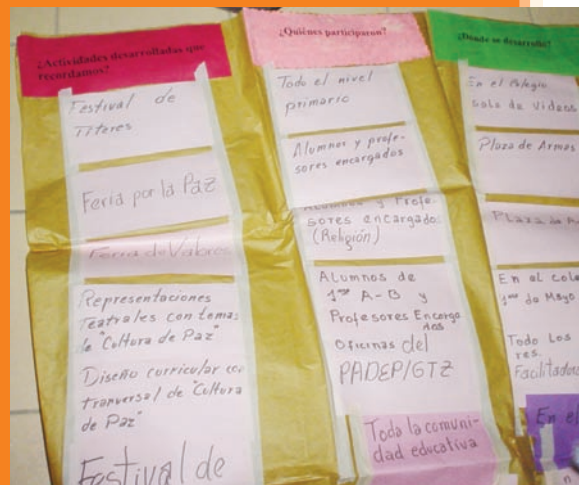 ¿Actividades desarrolladas que
recordamos?
Festival de
Títeres
Feria por la Paz
Feria de Valores
Representaciones
Teatrales con temas
de "Cultura de Paz"
Diseño curricular con
tranversal de "Cultura
de Paz"
Festival de
¿Quiénes participaron?
Todo el nivel
primario
Alumnos y profe-
sores encargados
Alumnos y Profe-
sores encargado
(Religión)
Alumnos de
1ro A-B y
Profesores Encarga
dos
Oficinas del
PADEP/GTZ
Toda la comuni-
dad educativa
¿Dónde se desarrolló?
En el Colegio
Sala de Videos
Plaza de Armas
Plaza de A
En el Cole
1ro de Mayo
Todo Los
res.
Facilitadores
En el